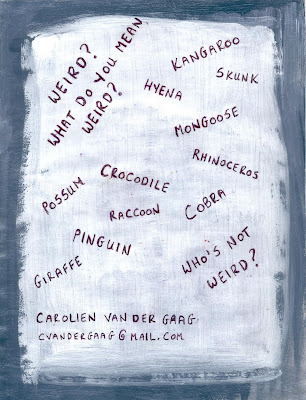 WEIRD?
WHAT DO YOU MEAN
WEIRD?
KANGAROO
SKUNK
HYENA
MONGOOSE
RHINOCEROS
CROCODILE
POSSUM
RACCOON
COBRA
PINGUIN
GIRAFFE
WHO'S NOT
WEIRD?
CAROLIEN VAN DER GAAG
CVANDERGAAG@MAIL.COM